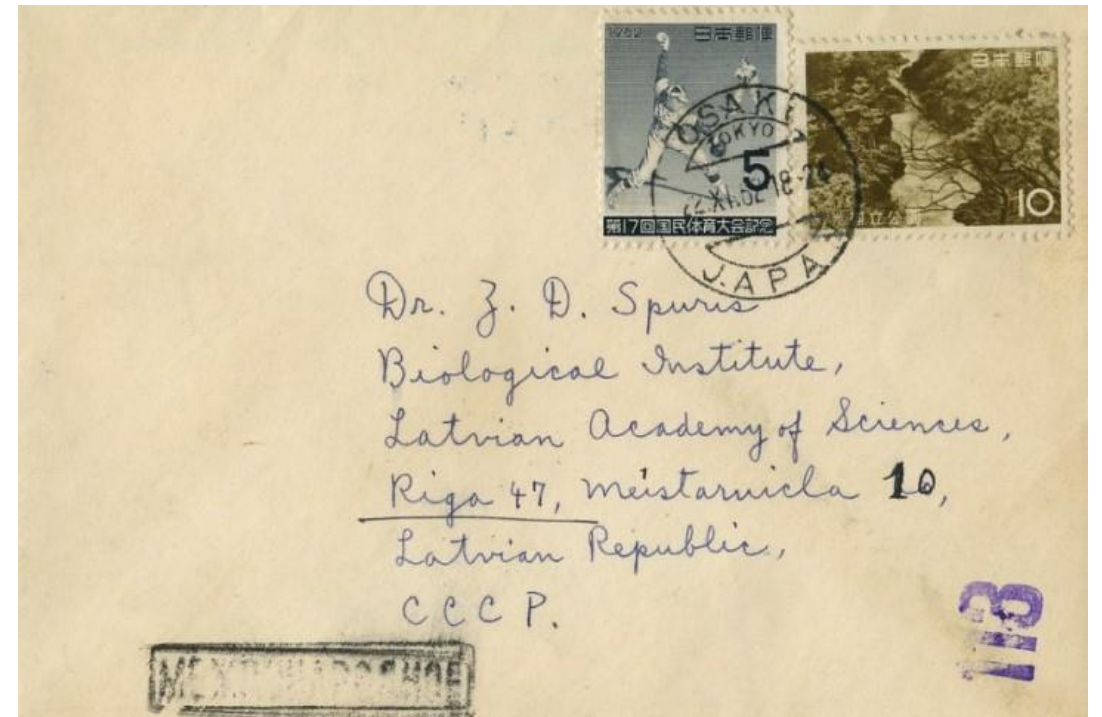 1962 日本郵便
5
第17回国民体育大会記念
日本郵便
10
国立公園
OSAKI
TOKYO
18-24
JAPAN
Dr. Z. D. Spuris
Biological Institute,
Latvian Academy of Sciences,
Riga 47, Meistaruiela 10,
Latvian Republic,
CCCP.
МЕЖДУНАРОДНОЕ
113